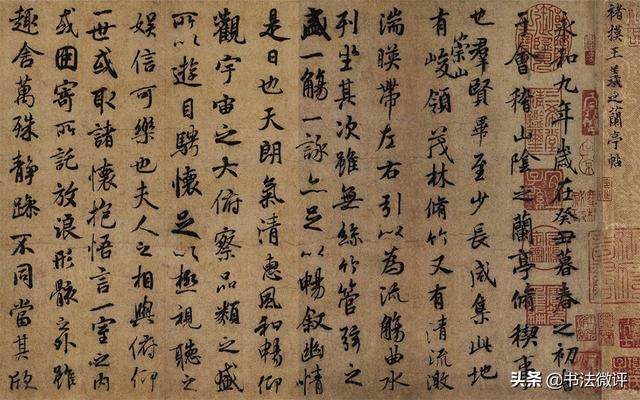 褚摸王羲之蘭亭帖
永和九年歲在癸丑暮春之初會
于會稽山陰之蘭亭脩稧事
也羣賢畢至少長咸集此地
崇山
有峻領茂林脩竹又有清流激
湍暎帶左右引以為流觴曲水
列坐其次雖無絲竹管弦之
盛一觴一詠亦足以暢叙幽情
是日也天朗氣清惠風和暢仰
觀宇宙之大俯察品類之盛
所以遊目騁懷足以極視聽之
娛信可樂也夫人之相與俯仰
一世或取諸懷抱悟言一室之內
或因寄所託放浪形骸之外雖
趣舍萬殊靜躁不同當其欣
头条 @书法微评